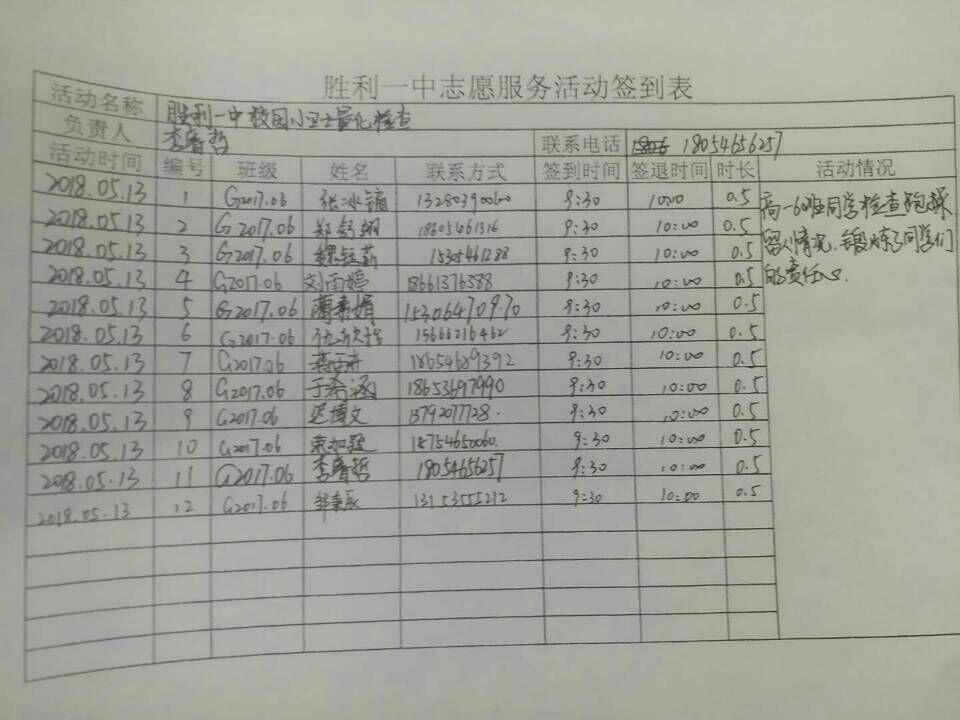 胜利一中志愿服务活动签到表
活动名称 胜利一中校园小卫士量化检查
负责人 李睿哲 联系电话 18054656257
活动时间 编号 班级 姓名 联系方式 签到时间 签退时间 时长 活动情况
2018.05.13 1 G2017.06 张冰镝 13280390060 9:30 10:00 0.5 高一6班同学检查跑操
2018.05.13 2 G2017.06 郑舒翔 18605461316 9:30 10:00 0.5 留人情况,锻炼了同学们
2018.05.13 3 G2017.06 15305461288 9:30 10:00 0.5 的责任心.
2018.05.13 4 G2017.06 刘雨嫣 18661376588 9:30 10:00 0.5
2018.05.13 5 G2017.06 15306470970 9:30 10:00 0.5
2018.05.13 6 G2017.06 15666216462 9:30 10:00 0.5
2018.05.13 7 G2017.06 18654689392 9:30 10:00 0.5
2018.05.13 8 G2017.06 于希涵 18653697990 9:30 10:00 0.5
2018.05.13 9 G2017.06 迟博文 13792077728. 9:30 10:00 0.5
2018.05.13 10 G2017.06 18754650060. 9:30 10:00 0.5
2018.05.13 11 G2017.06 李睿哲 18054656257 9:30 10:00 0.5
2018.05.13 12 G2017.06 邹秉辰 13153555212 9:30 10:00 0.5